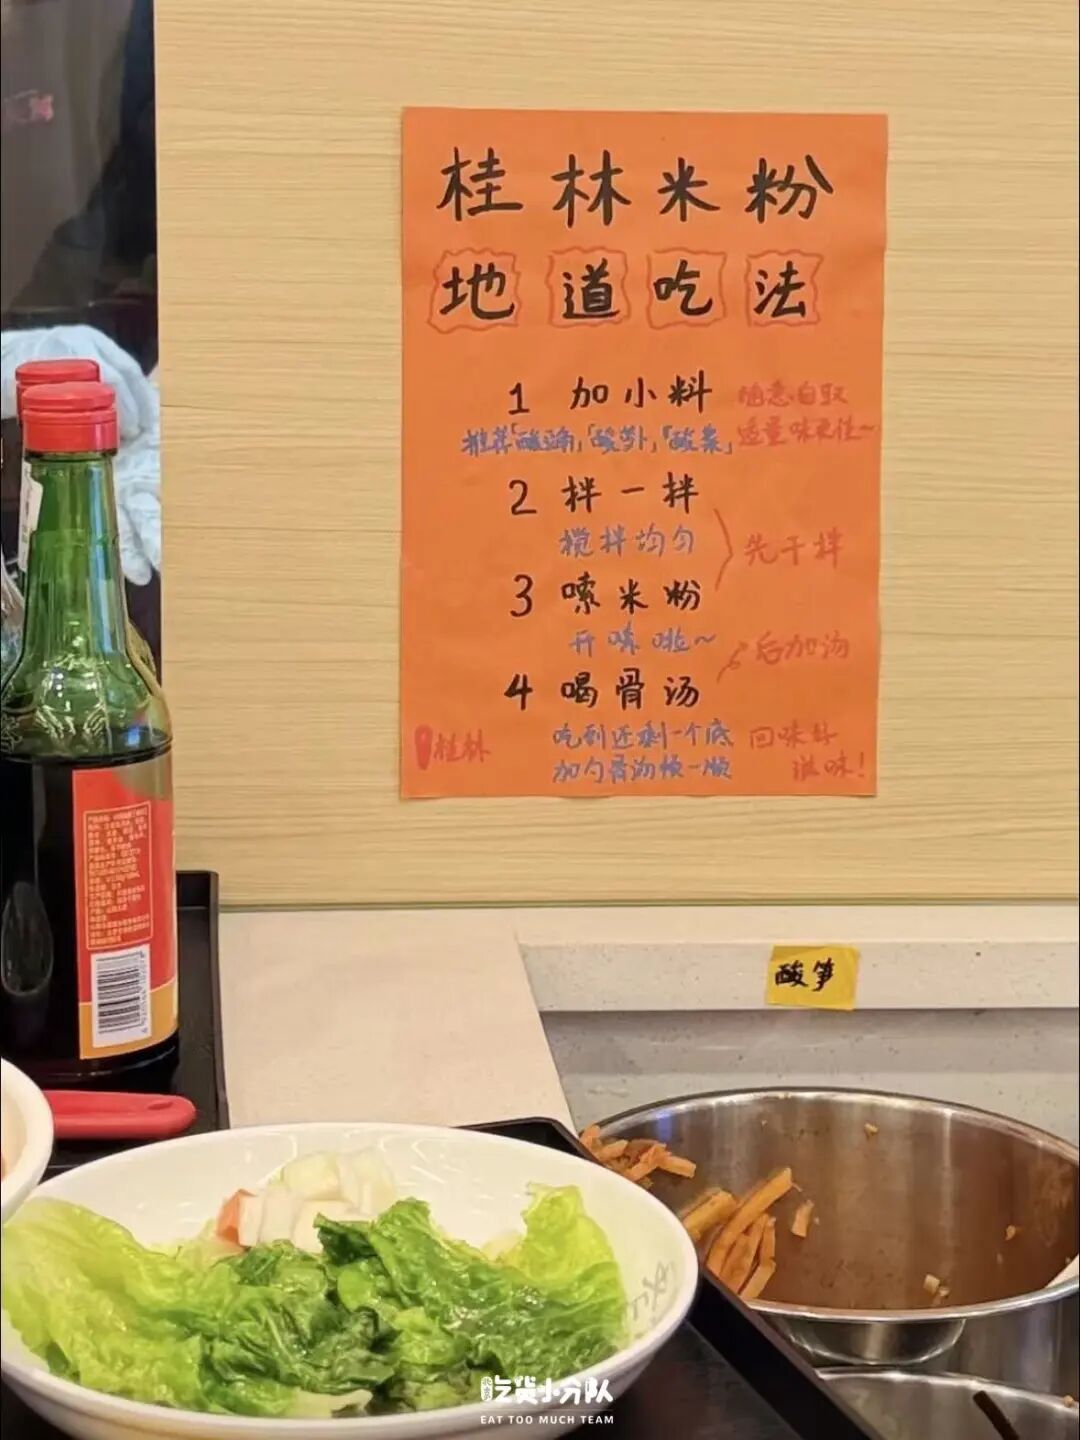 桂林米粉
地道吃法
1 加小料
随意自取
适量味更佳~
推荐「酸豆角」「酸萝卜」「酸菜」
2 拌一拌
搅拌均匀
先干拌
3 嗦米粉
开嗦啦~
后加汤
4 喝骨汤
吃到还剩一个底
加勺骨汤顺一顺
回味好
滋味!
桂林
酸笋
吃货小分队
EAT TOO MUCH TEAM